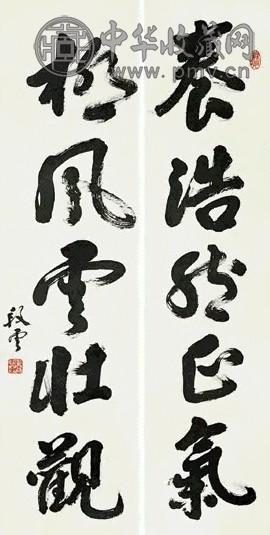 養浩然正氣
極風雲壯觀
段雲
中华收藏网